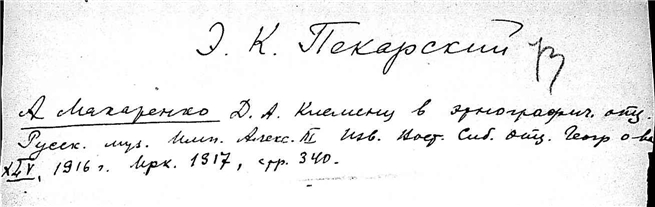 Э. К. Пекарский
А Макаренко Д. А. Клеменц в этнографич. отд.
Русск. муз. Имп. Алекс. III Изв. Вост. Сиб. отд. Геогр о-ва
XLV, 1916 г. Ирк. 1917, стр. 340.